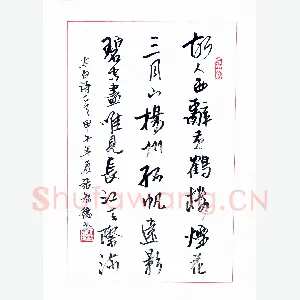 故人西辭黄鶴樓煙花
三月下楊州孤帆遠影
碧空盡唯見長江天際流
李白詩一首甲午年夏
Shufawang.CN